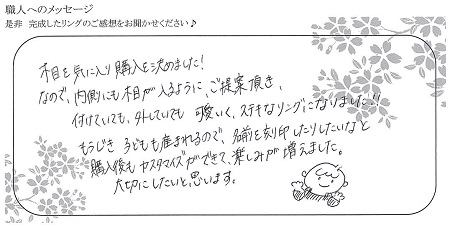 職人へのメッセージ
是非 完成したリングのご感想をお聞かせください♪
木目を気に入り購入を決めました!
なので、内側にも木目が入るように、ご提案頂き、
付けていても、外していても 可愛いく、ステキなリングになりました!!
もうじき 子どもも産まれるので、名前を刻印したりしたいなと
購入後も カスタマイズができて、楽しみが増えました。
大切にしたいと思います。